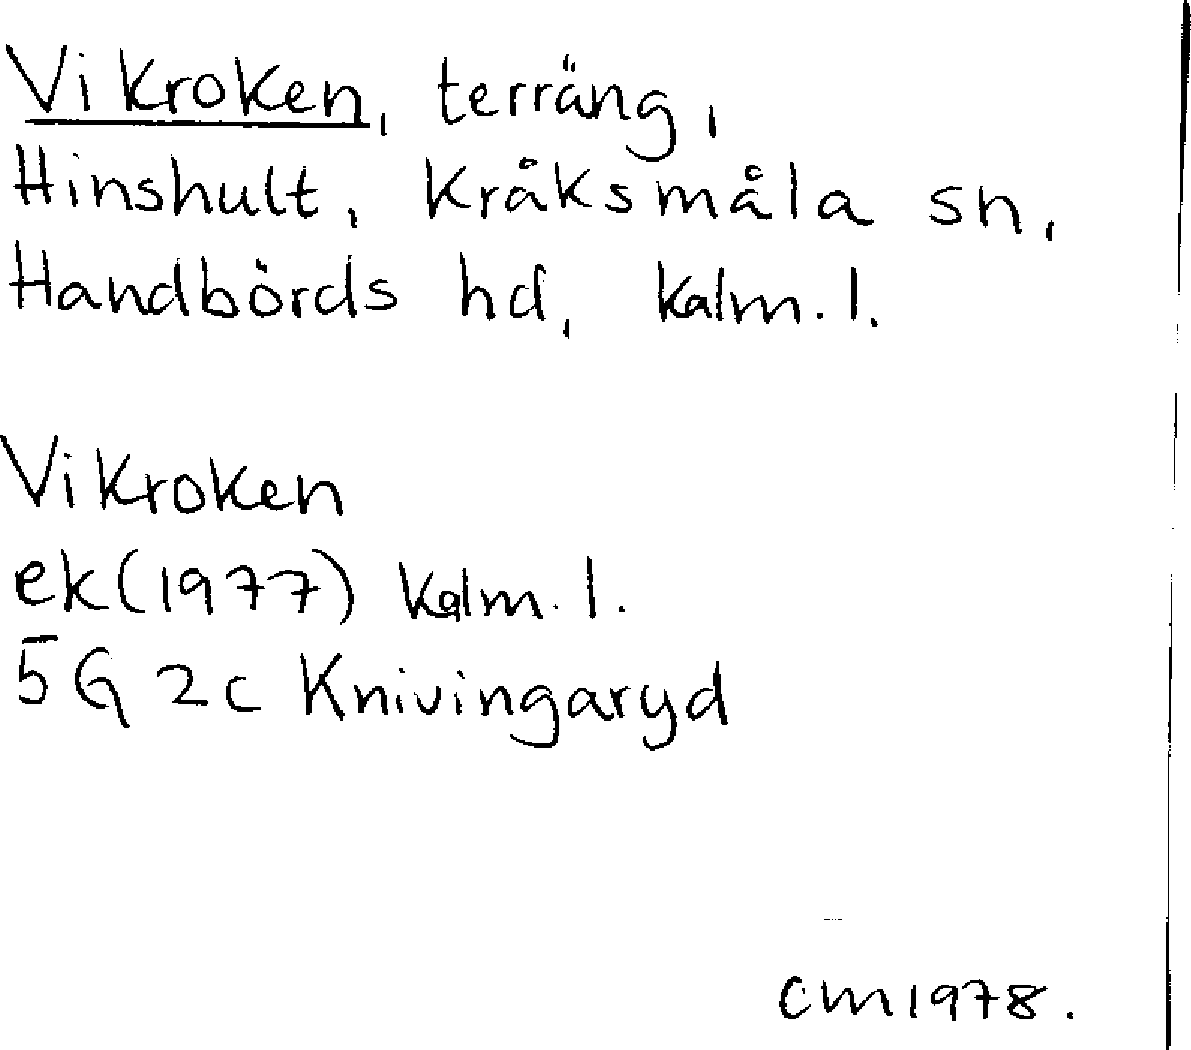 Vikroken, terräng,
Hinshult, Kråksmåla sn,
Handbörds hd, Kalm. l.
Vikroken
ek (1977) Kalm. l.
5G 2c Knivingaryd
CM 1978.